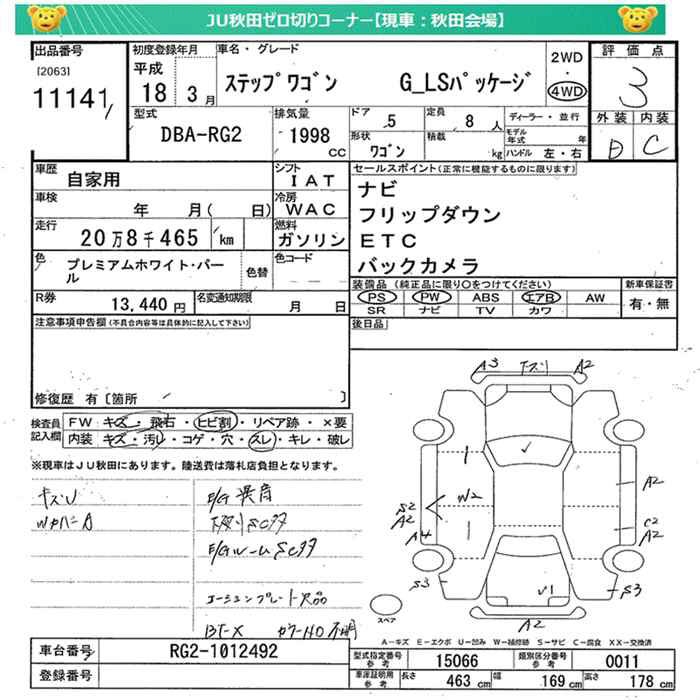 JU秋田ゼロ切りコーナー【現車：秋田会場】
出品番号
[2063]
11141
初度登録年月
平成
18 3月
車名・グレード
ステップワゴン G_LSパッケージ
2WD
・
4WD
評価点
3
外装 内装
D C
型式
DBA-RG2
排気量
1998 CC
ドア 5
定員 8人
形状 ワゴン
積載 kg
ディーラー・並行
モデル年式 年
ハンドル 左・右
車歴
自家用
シフト
IAT
車検
年 月( 日)
冷房
WAC
走行
20万8千465 km
燃料
ガソリン
色
プレミアムホワイト・パール
色替
色コード
R券
13,440円
名変通知期限
月 日
セールスポイント(正常に機能するものに限ります)
ナビ
フリップダウン
ETC
バックカメラ
装備品 (純正品に限り○をつけてください)
PS PW ABS エアB AW
SR ナビ TV カワ
新車保証書
有・無
後日品
注意事項申告欄(不具合内容等は具体的に記入して下さい)
修復歴 有〔箇所 〕
検査員記入欄
FW キズ・飛石・ヒビ割・リペア跡・×要
内装 キズ・汚レ・コゲ・穴・スレ・キレ・破レ
※現車はJU秋田にあります。陸送費は落札店負担となります。
キズU
E/G異音
下廻りSCタタ
E/GルームSCタタ
コーションプレート欠品
A3 キズU A2
S2
A2
A4
W2
A2
C2
A2
S3
S3
U1
A2
スペア
A-キズ E-エクボ U-凹み W-補修跡 S-サビ C-腐食 XX-交換済
車台番号
RG2-1012492
登録番号
型式指定番号 参考
15066
類別区分番号 参考
0011
車庫証明用 参考
長さ 463 cm
幅 169 cm
高さ 178 cm